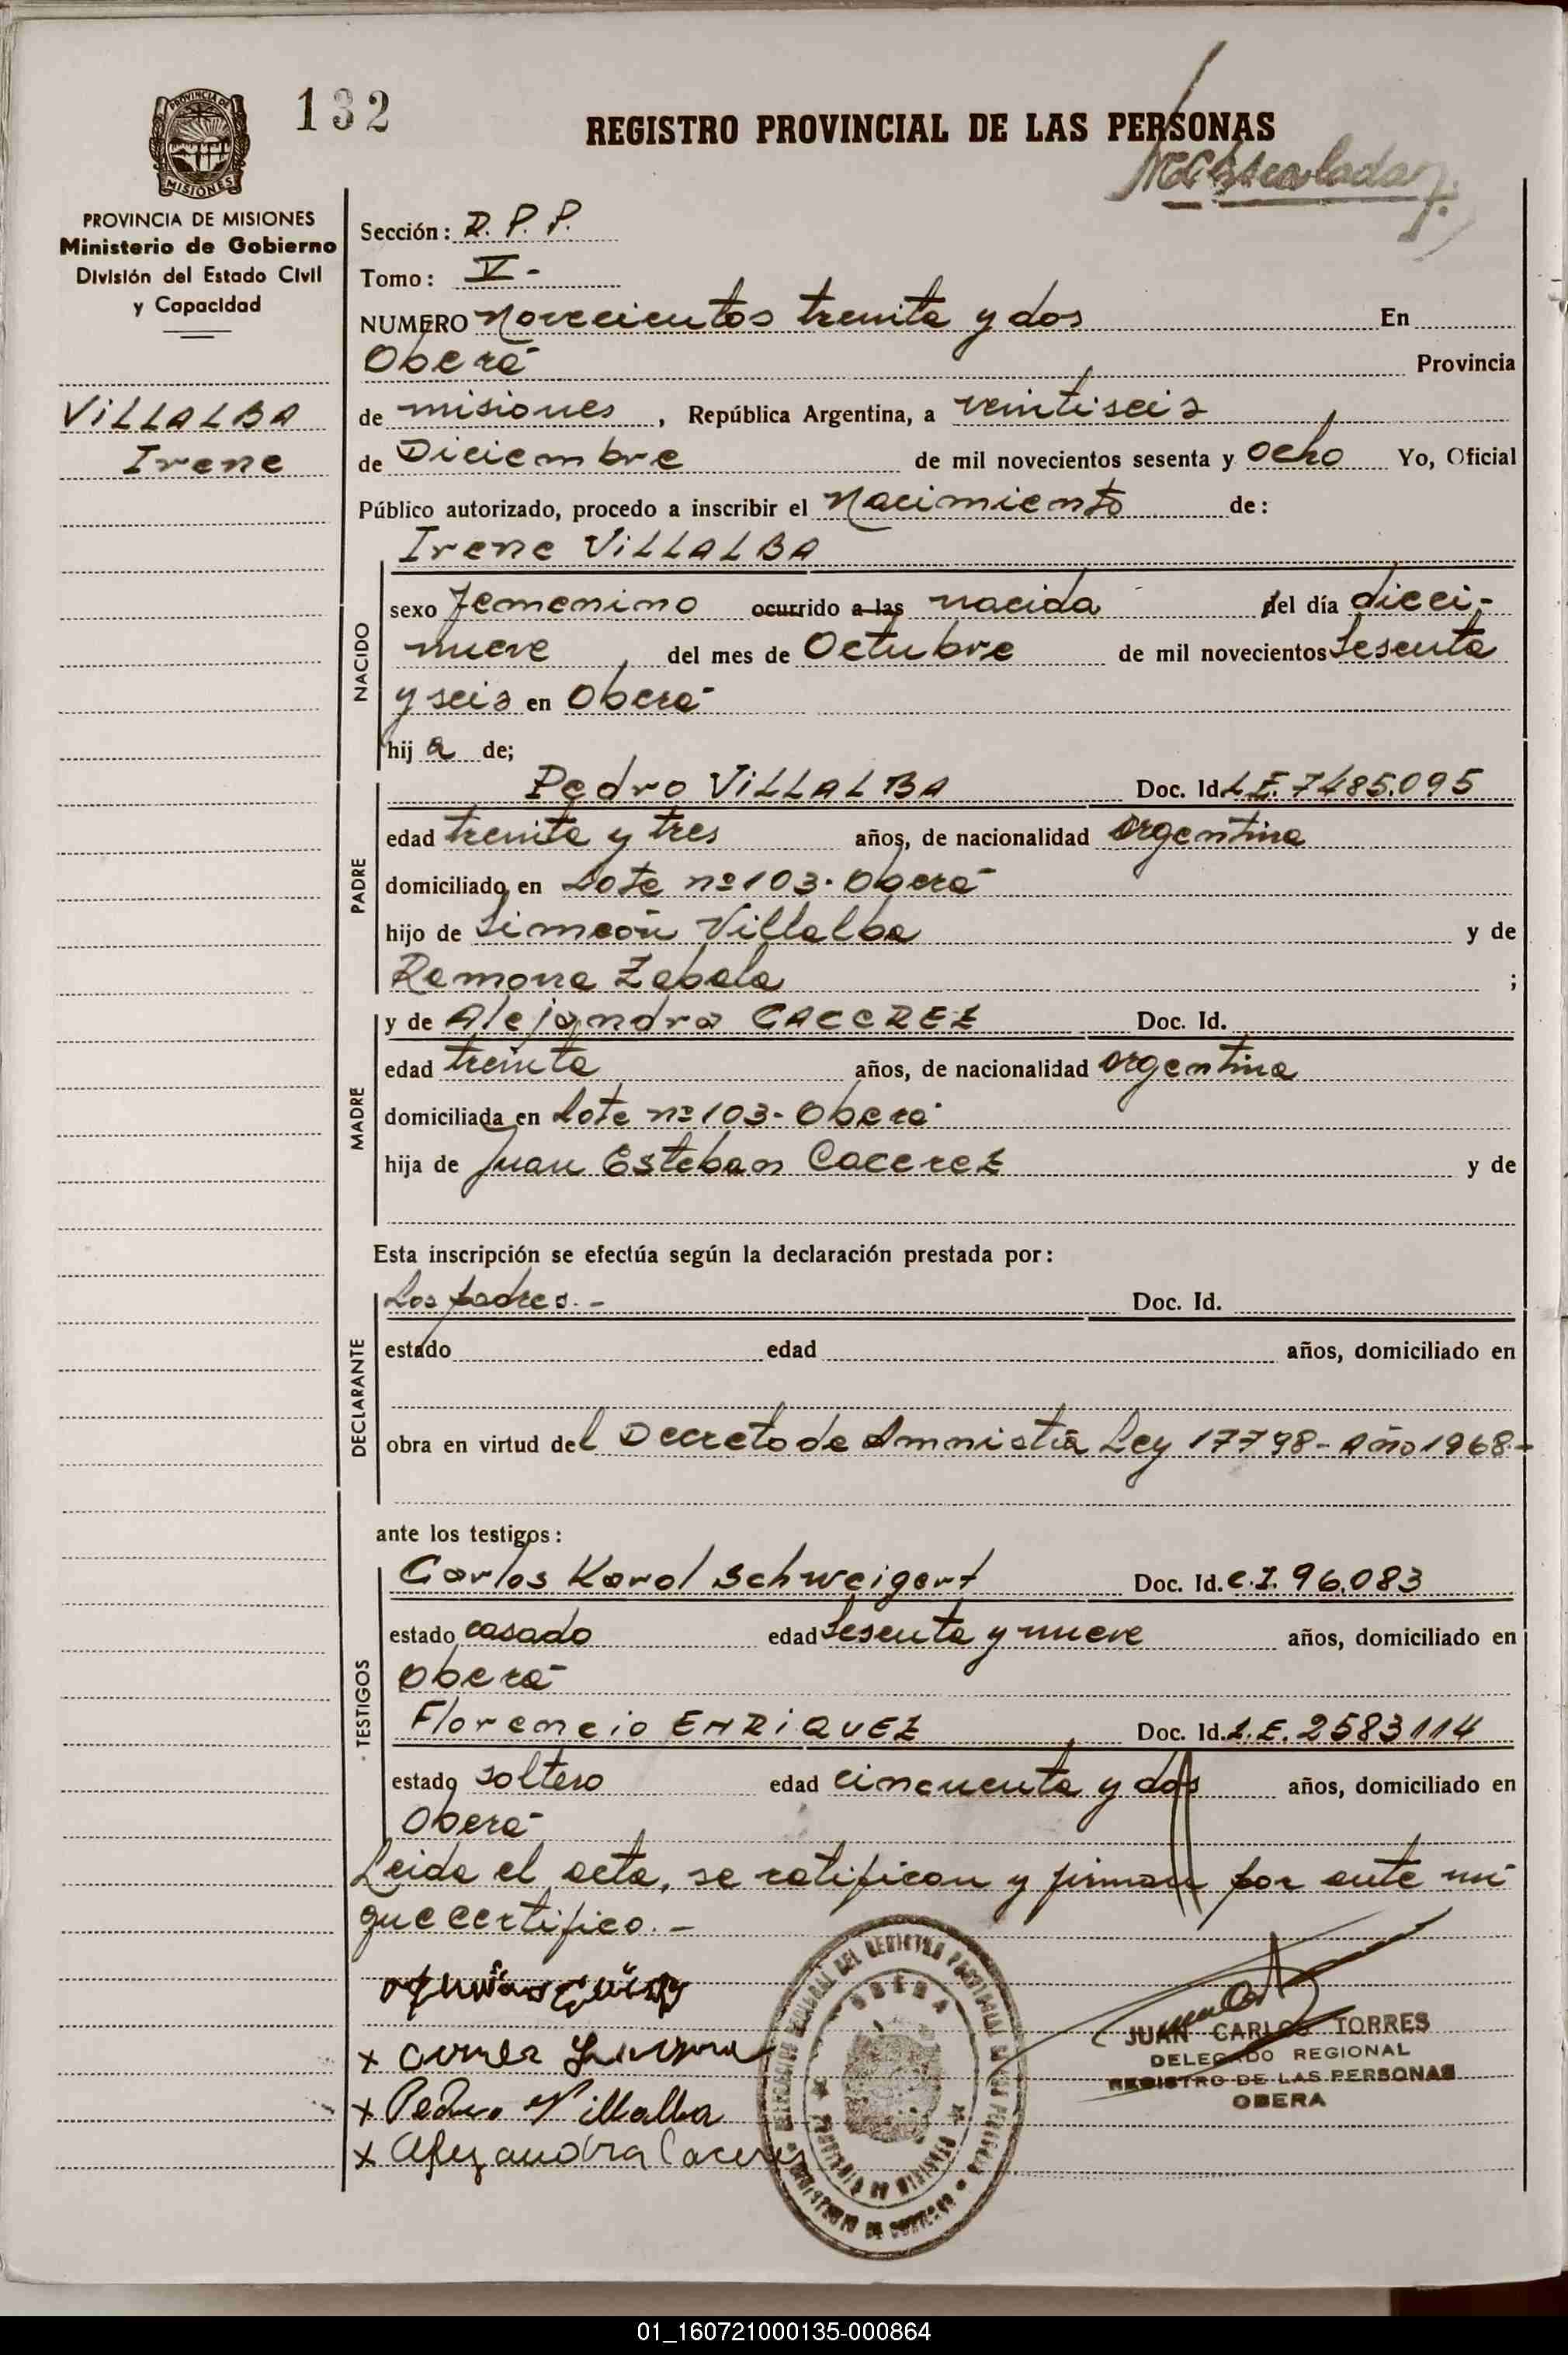 132
REGISTRO PROVINCIAL DE LAS PERSONAS
PROVINCIA DE
MISIONES
PROVINCIA DE MISIONES
Ministerio de Gobierno
División del Estado Civil
y Capacidad
VILLALBA
Irene
Sección: R. P. P.
Tomo: V-
NUMERO Novecientos treinta y dos En
Oberá Provincia
de misiones, República Argentina, a veintiseis
de Diciembre de mil novecientos sesenta y ocho Yo, Oficial
Público autorizado, procedo a inscribir el Nacimiento de:
Irene VILLALBA
NACIDO
sexo femenino ocurrido a las nacida del día dieci-
nueve, del mes de Octubre de mil novecientos sesenta
y seis en Oberá
hij a de;
PADRE
Pedro VILLALBA Doc. Id. L.E. 7485.095
edad treinta y tres años, de nacionalidad argentina
domiciliado en Lote nº 103 - Oberá
hijo de Simeón Villalba y de
Ramona Zabala ;
MADRE
y de Alejandra CACEREZ Doc. Id.
edad treinta años, de nacionalidad argentina
domiciliada en Lote nº 103 - Oberá
hija de Juan Esteban Cacerez y de
Esta inscripción se efectúa según la declaración prestada por:
DECLARANTE
Los padres.- Doc. Id.
estado edad años, domiciliado en
obra en virtud del Decreto de Amnistía Ley 17798 - Año 1968.-
ante los testigos:
TESTIGOS
Carlos Karol Schweigert Doc. Id. C.I. 96.083
estado casado edad sesenta y nueve años, domiciliado en
Oberá
Florencio ENRIQUEZ Doc. Id. L.E. 2583114
estado soltero edad cincuenta y dos años, domiciliado en
Oberá
Leida el acta, se ratifican y firman por ante mi
que certifico.-
x Pedro Villalba
x Alejandra Caceres
OBERA
JUAN CARLOS TORRES
DELEGADO REGIONAL
REGISTRO DE LAS PERSONAS
OBERA
01_160721000135-000864